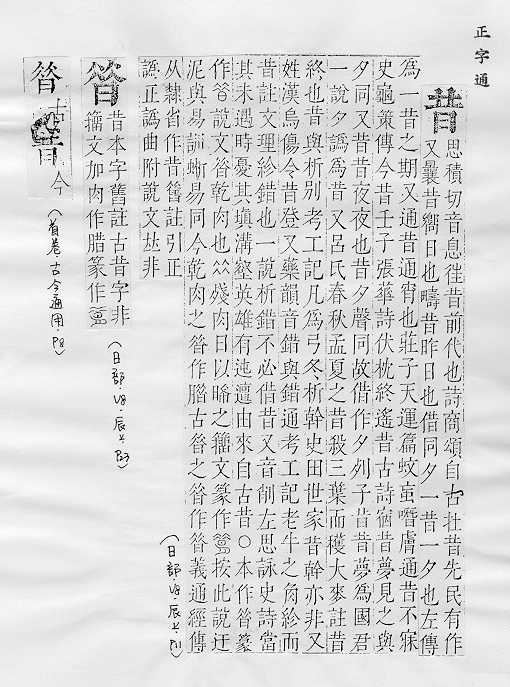 正字通
昔 思積切音息徃昔前代也詩商頌自古在昔先民有作
又曩昔嚮日也疇昔昨日也借同夕一昔一夕也左傳
為一昔之期又通昔通宵也莊子天運篇蚊䖟噆膚通昔不寐
史龜策傳今昔壬子張華詩伏枕終遙昔古詩宿昔夢見之與
夕同又昔昔夜夜也昔夕聲同故借作夕列子昔昔夢為國君
一說夕譌為昔又呂氏春秋孟夏之昔殺三葉而穫大麥註昔
終也昔與析別考工記凡為弓冬析幹史田世家昔幹亦非又
姓漢烏傷令昔登又藥韻音錯與錯通考工記老牛之角紾而
昔註文理紾錯也一說析錯不必借昔又音削左思詠史詩當
其未遇時憂其塡溝壑英雄有迍邅由來自古昔○本作㫺篆
作㫺說文㫺乾肉也仌殘肉日以晞之籒文篆作按此說迂
泥與易訓蜥易同今乾肉之㫺作腊古㫺之㫺作㫺義通經傳
从隸省作昔舊註引正
譌正譌曲附說文𠀤非
(日部 辰上 P.1)
㫺 昔本字舊註古昔字非
籒文加肉作腊篆作
(日部 辰上 P.3)
㫺 古 昔 今
(首卷古今通用 P8)